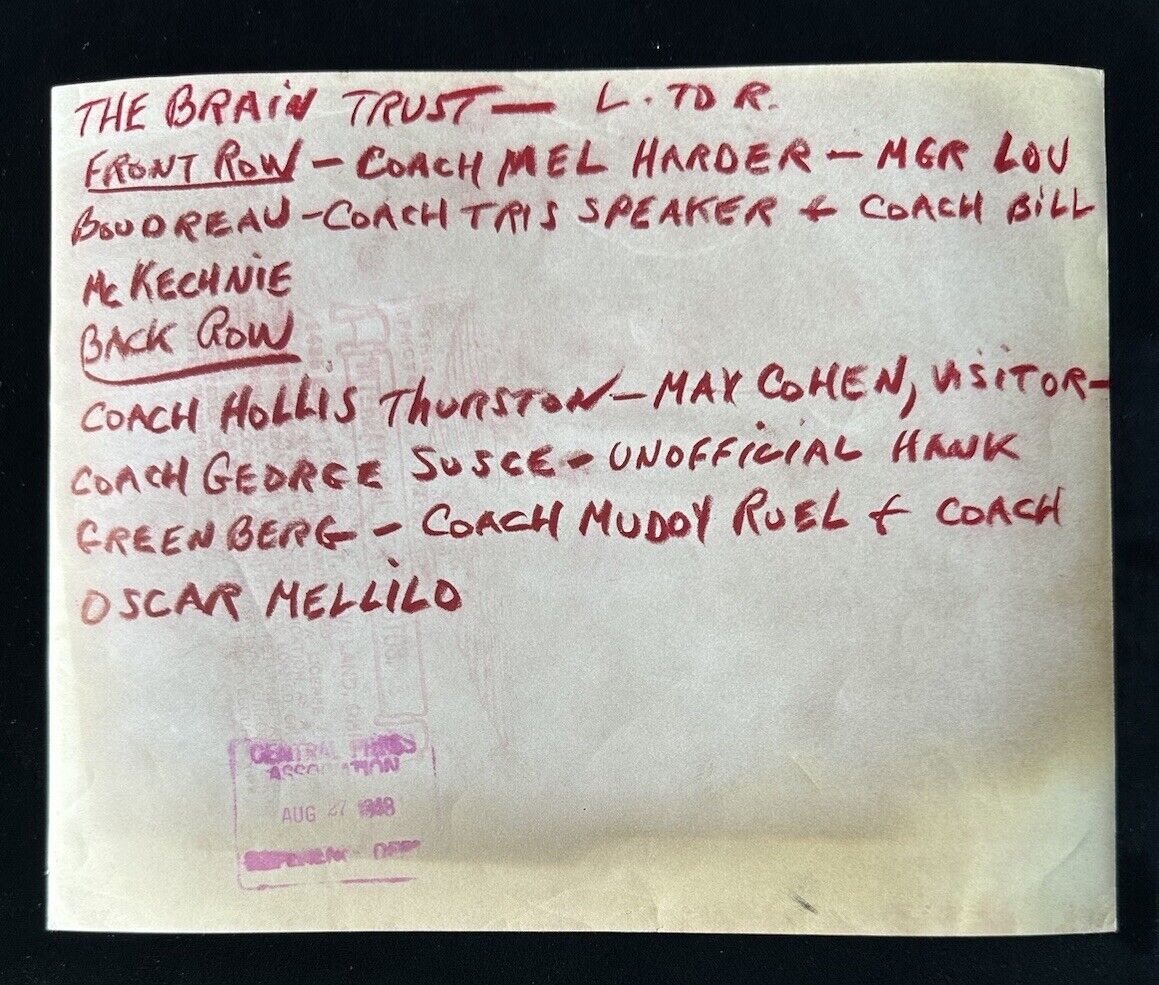 THE BRAIN TRUST — L. TO R.
FRONT ROW - COACH MEL HARDER - MGR LOU
BOUDREAU - COACH TRIS SPEAKER + COACH BILL
McKECHNIE
BACK ROW
COACH HOLLIS THURSTON - MAX COHEN, VISITOR-
COACH GEORGE SUSCE - UNOFFICIAL HANK
GREENBERG - COACH MUDDY RUEL + COACH
OSCAR MELLILO
CENTRAL PRESS
ASSOCIATION
AUG 27 1948